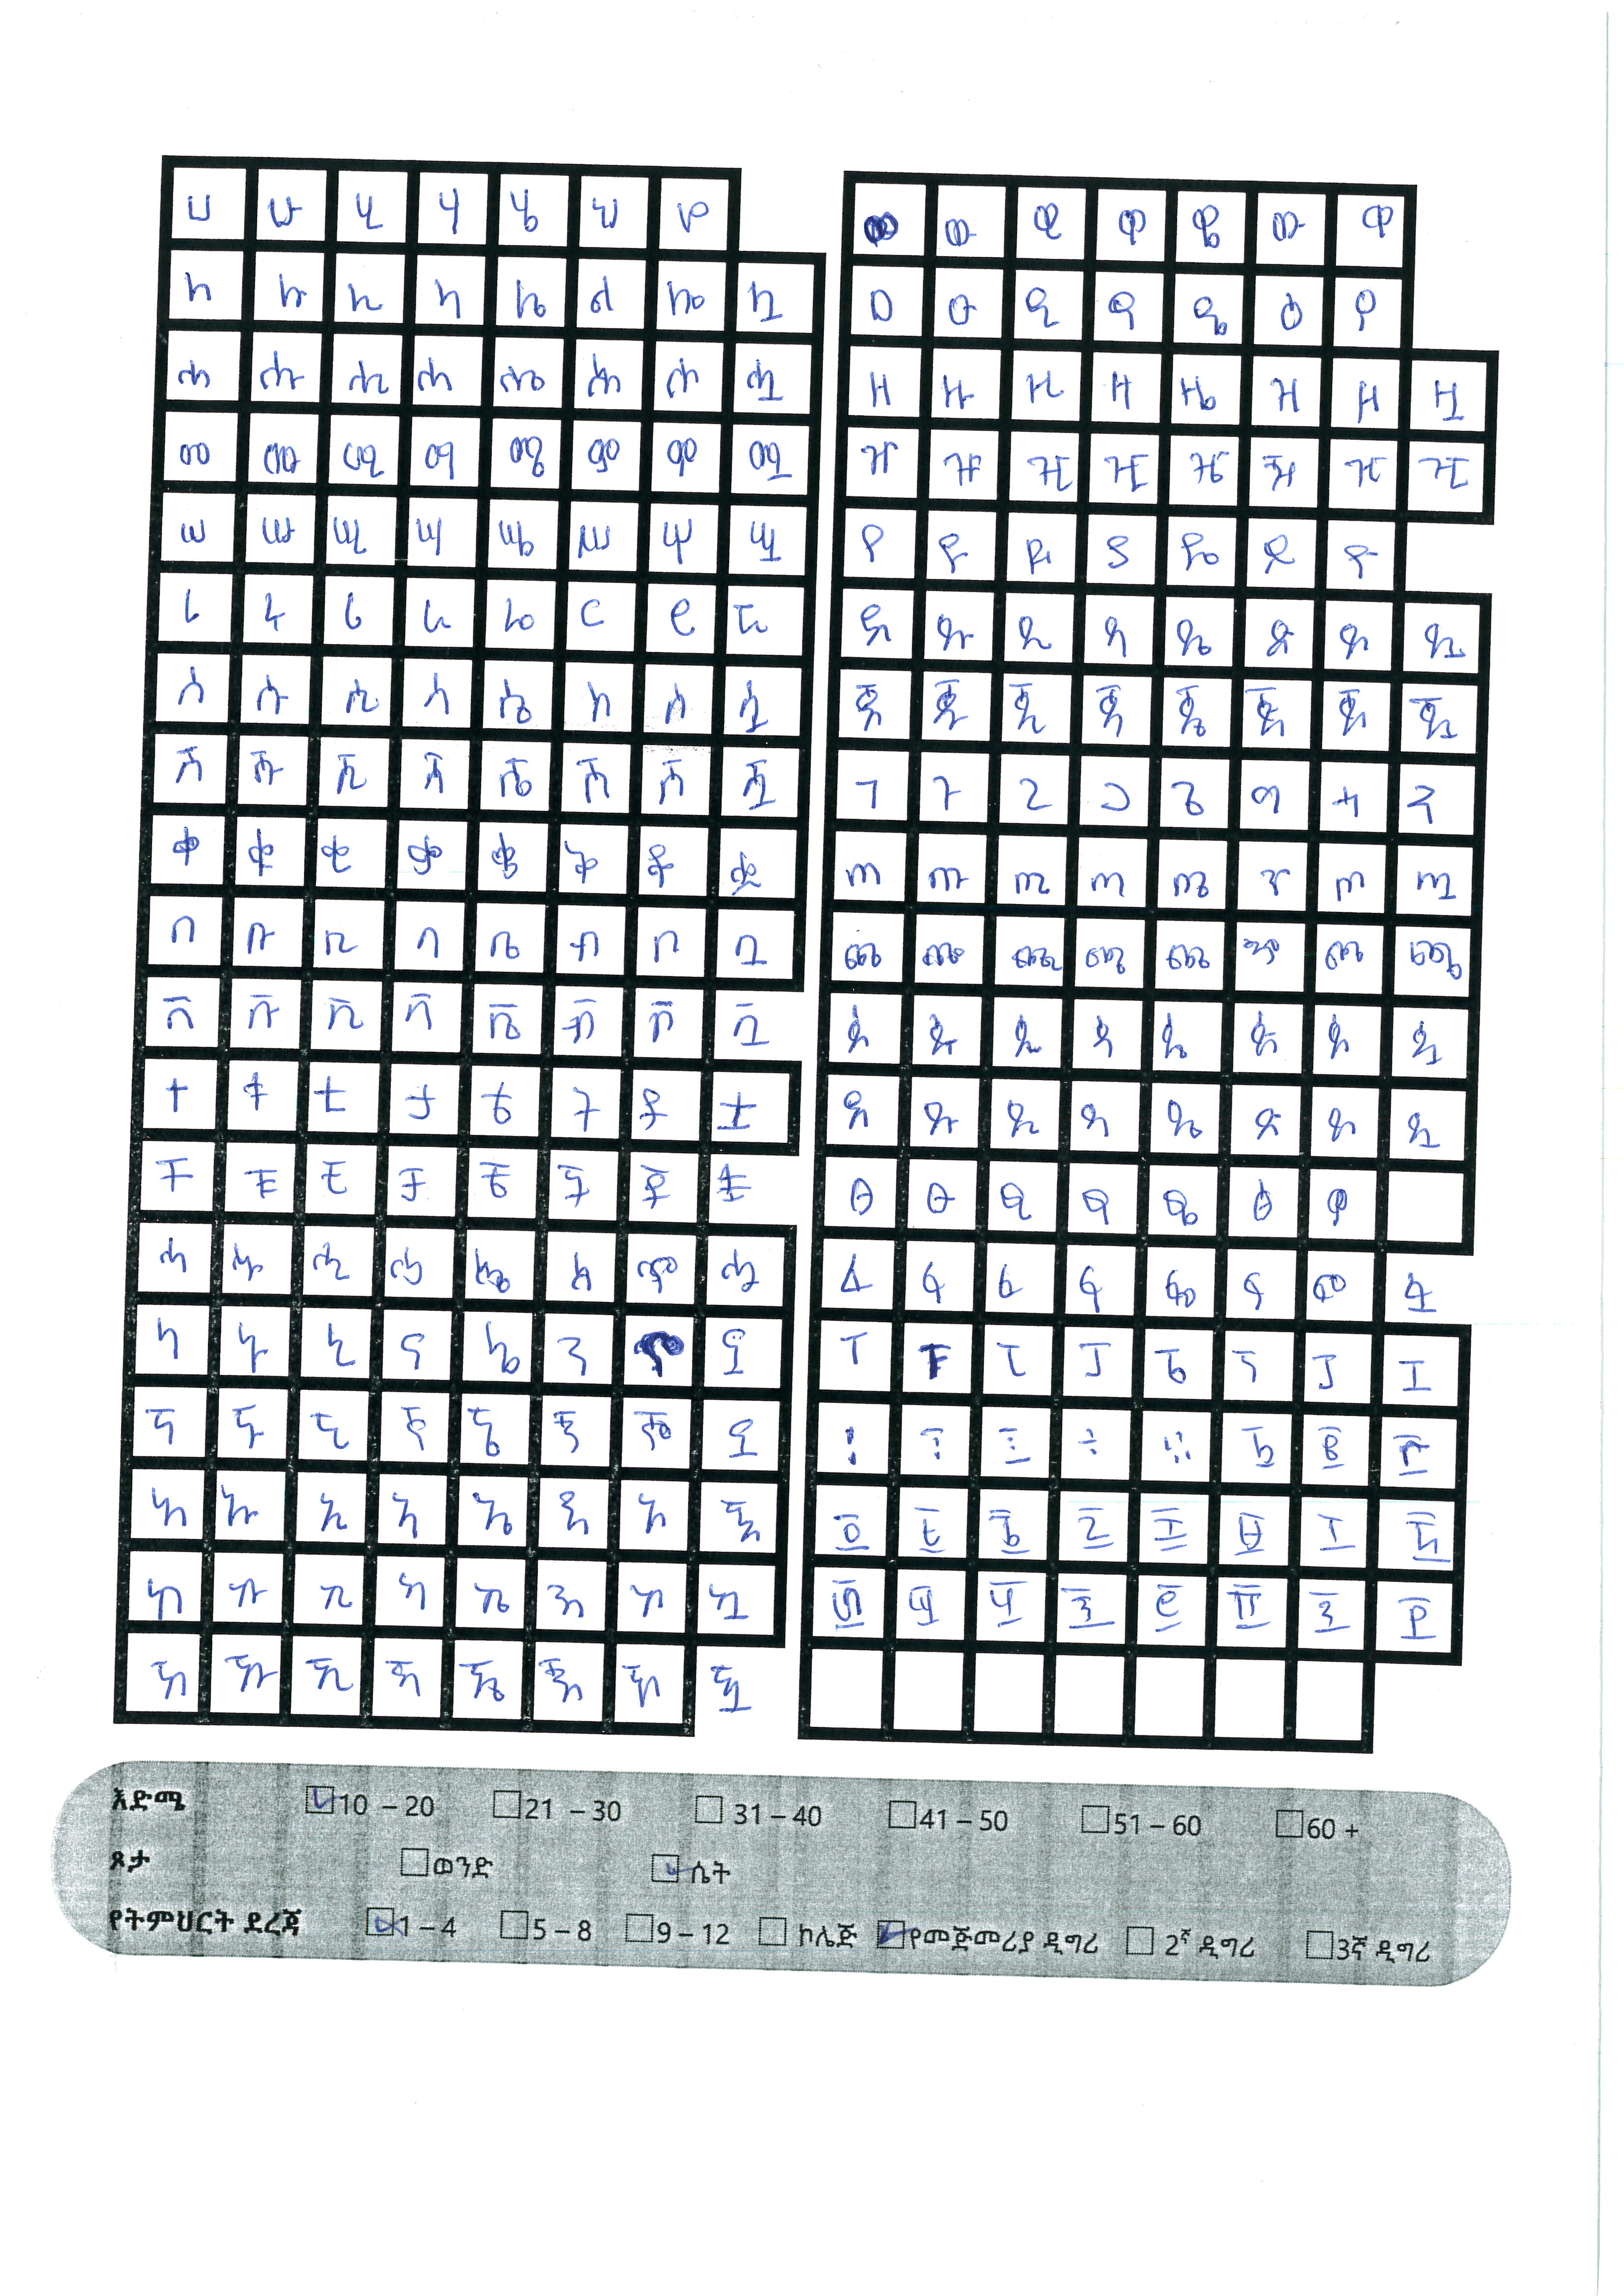 ሀ ሁ ሂ ሃ ሄ ህ ሆ
ለ ሉ ሊ ላ ሌ ል ሎ ሏ
ሐ ሑ ሒ ሓ ሔ ሕ ሖ ሗ
መ ሙ ሚ ማ ሜ ም ሞ ሟ
ሠ ሡ ሢ ሣ ሤ ሥ ሦ ሧ
ረ ሩ ሪ ራ ሬ ር ሮ ሯ
ሰ ሱ ሲ ሳ ሴ ስ ሶ ሷ
ሸ ሹ ሺ ሻ ሼ ሽ ሾ ሿ
ቀ ቁ ቂ ቃ ቄ ቅ ቆ ቋ
በ ቡ ቢ ባ ቤ ብ ቦ ቧ
ቨ ቩ ቪ ቫ ቬ ቭ ቮ ቯ
ተ ቱ ቲ ታ ቴ ት ቶ ቷ
ቸ ቹ ቺ ቻ ቼ ች ቾ ቿ
ኀ ኁ ኂ ኃ ኄ ኅ ኆ ኋ
ነ ኑ ኒ ና ኔ ን ኖ ኗ
ኘ ኙ ኚ ኛ ኜ ኝ ኞ ኟ
አ ኡ ኢ ኣ ኤ እ ኦ ኧ
ከ ኩ ኪ ካ ኬ ክ ኮ ኳ
ኸ ኹ ኺ ኻ ኼ ኽ ኾ ዃ
ወ ዉ ዊ ዋ ዌ ው ዎ
ዐ ዑ ዒ ዓ ዔ ዕ ዖ
ዘ ዙ ዚ ዛ ዜ ዝ ዞ ዟ
ዠ ዡ ዢ ዣ ዤ ዥ ዦ ዧ
የ ዩ ዪ ያ ዬ ይ ዮ
ደ ዱ ዲ ዳ ዴ ድ ዶ ዷ
ጀ ጁ ጂ ጃ ጄ ጅ ጆ ጇ
ገ ጉ ጊ ጋ ጌ ግ ጎ ጓ
ጠ ጡ ጢ ጣ ጤ ጥ ጦ ጧ
ጨ ጩ ጪ ጫ ጬ ጭ ጮ ጯ
ጰ ጱ ጲ ጳ ጴ ጵ ጶ ጷ
ጸ ጹ ጺ ጻ ጼ ጽ ጾ ጿ
ፀ ፁ ፂ ፃ ፄ ፅ ፆ
ፈ ፉ ፊ ፋ ፌ ፍ ፎ ፏ
ፐ ፑ ፒ ፓ ፔ ፕ ፖ ፗ
፩ ፪ ፫
፬ ፭ ፮ ፯ ፰ ፱ ፲ ፳
፴ ፵ ፶ ፷ ፸ ፹ ፺ ፻
እድሜ 10 – 20 21 – 30 31 – 40 41 – 50 51 – 60 60 +
ጾታ ወንድ ሴት
የትምህርት ደረጃ 1 – 4 5 – 8 9 – 12 ኮሌጅ የመጀመሪያ ዲግሪ 2ኛ ዲግሪ 3ኛ ዲግሪ